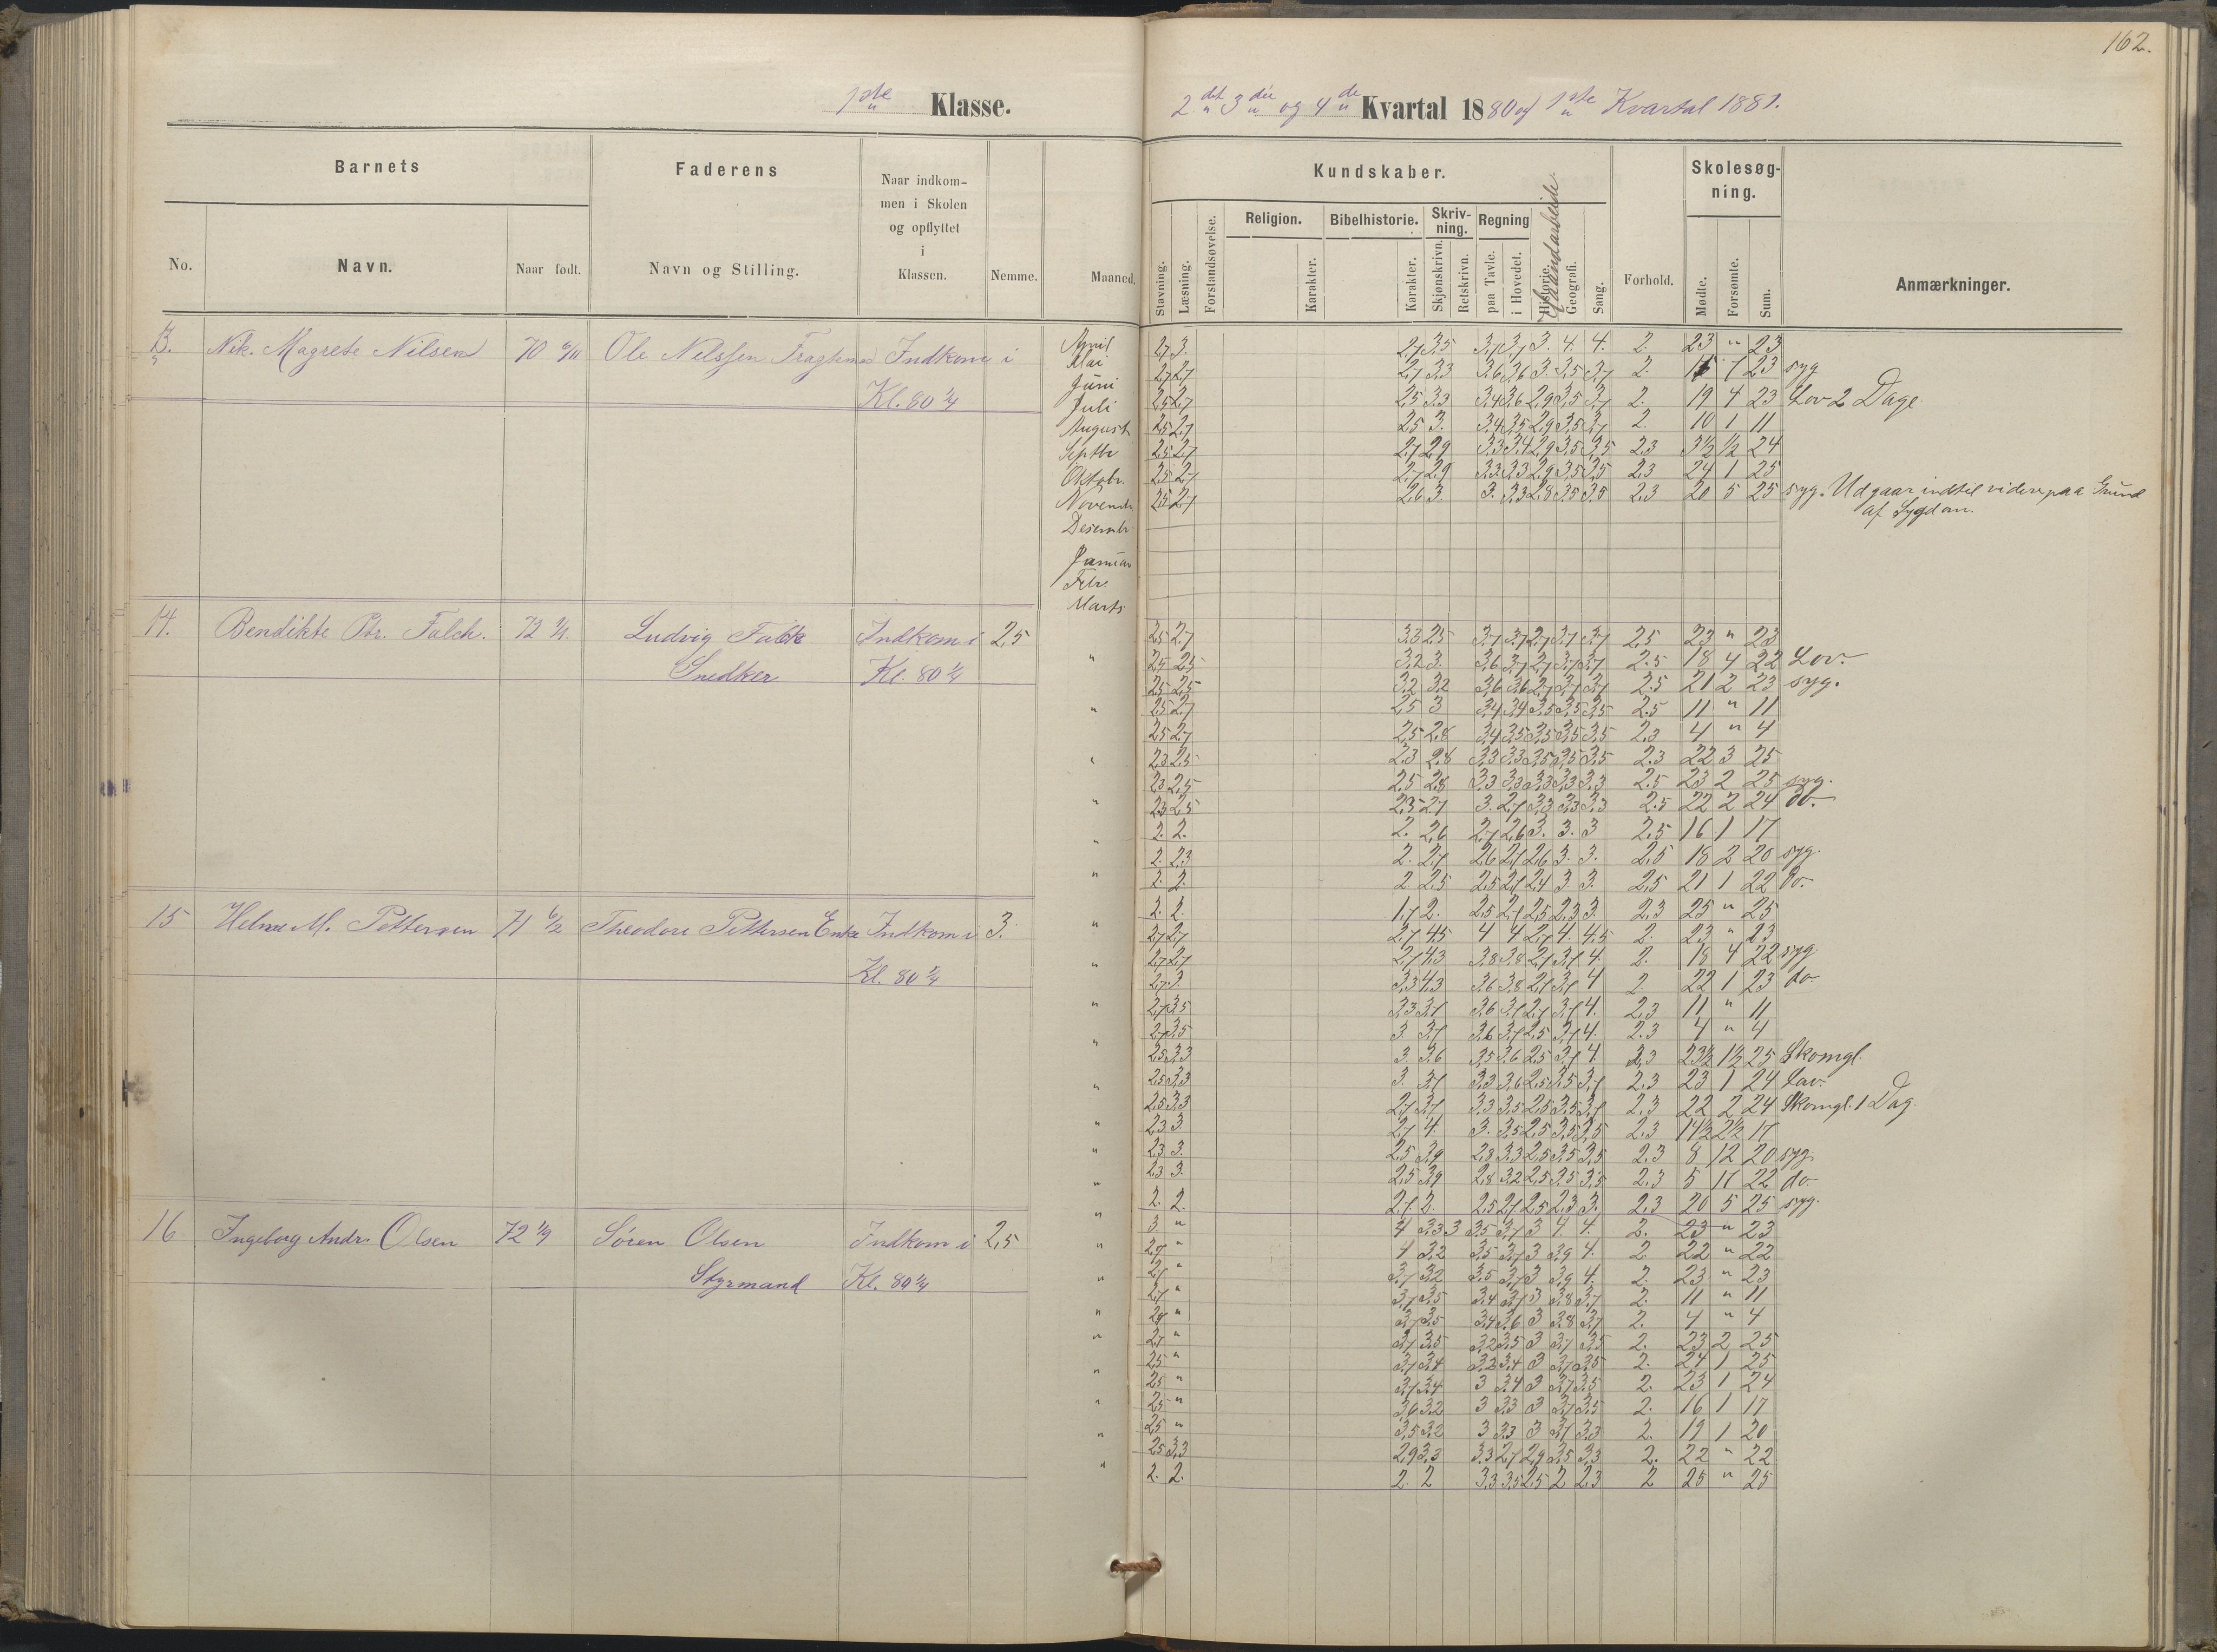 162.
1ste Klasse.
2det 3die og 4de Kvartal 1880 og 1ste Kvartal 1881.
Barnets
Faderens
Naar indkom-
men i Skolen
og opflyttet
i
Klassen.
No.
Navn.
Naar født.
Navn og Stilling.
Nemme.
Maaned.
Kundskaber.
Skolesøg-
ning.
Stavning.
Læsning.
Forstandsøvelse.
Religion.
Karakter.
Bibelhistorie.
Karakter.
Skriv-
ning.
Skjønskrivn.
Retskrivn.
Regning
paa Tavle.
i Hovedet.
Historie.
Haandarbeide.
Geografi.
Sang.
Forhold.
Mødte.
Forsømte.
Sum.
Anmærkninger.
13. Nik. Magrete Nilsen 70 6/11 Indkom i
Kl. 80 1/4
April 2,7 3. 2,7 3,5 3,7 3,7 3. 4. 4. 2. 23 " 23
Mai 2,7 2,7 2,7 3,3 3,6 3,6 3. 3,5 3,7 2. 7 23 syg
Juni 2,5 2,7 2,5 3,3 3,4 3,6 2,9 3,5 3,7 2. 19 4 23 Lov 2 Dage.
Juli 2,5 2,7 2,5 3. 3,4 3,5 2,9 3,5 3,7 2. 10 1 11
August 2,5 2,7 2,7 2,9 3,3 3,4 2,9 3,5 3,5 2,3 3½ ½ 24
Septbr 2,5 2,7 2,7 2,9 3,3 3,3 2,9 3,5 3,5 2,3 24 1 25
Oktobr. 2,5 2,7 2,6 3. 3. 3,3 2,8 3,5 3,5 2,3 20 5 25 syg. Udgaar indtil videre paa Grund
af Sygdom.
Novembr
Desembr.
Januar
Febr
Marts
14. Bendikte Ptr. Falch. 72 Ludvig Falck Indkom i 2,5
Snedker Kl. 80 1/4
2,5 2,7 3,3 2,5 3,7 3,7 2,7 3,7 3,7 2,5 23 " 23
2,5 2,5 3,2 3. 3,6 3,7 2,7 3,7 3,7 2.5 18 4 22 Lov.
2,5 2,5 3,2 3,2 3,6 3,6 2,7 3,7 3,7 2.5 21 2 23 syg.
2,5 2,7 2,5 3 3,4 3,4 3,5 3,5 3,5 2.5 11 " 11
2,5 2,7 2,5 2,8 3,4 3,5 3,5 3,5 3,5 2,3 4 " 4
2,3 2,5 2,3 2,8 3,3 3,3 3,5 3,5 3,5 2.3 22 3 25
2,3 2,5 2,5 2,8 3,3 3,3 3,3 3,3 3,3 2.5 23 2 25 syg.
2,3 2,5 2,3 2,7 3. 2,7 3,3 3,3 3,3 2.5 22 2 24 do.
2. 2. 2. 2,6 2,7 2,6 3. 3. 3 2,5 16 1 17
2. 2,3 2. 2,7 2,6 2,7 2,6 3. 3. 2,5 18 2 20 syg.
2. 2. 2. 2,5 2,5 2,7 2,4 3 3. 2,5 21 1 22 do.
2. 2. 1,7 2. 2,5 2,7 2,5 2,3 3. 2,3 25 " 25
15 M. Pettersen 71 6/2 Theodore Pettersen Enke Indkom i 3.
Kl. 80 1/4
2,7 2,7 2,7 4,5 4 4 2,7 4. 4,5 2. 23 " 23
2,7 2,7 2,7 4,3 3,8 3,8 2,7 3,7 4. 2. 18 4 22 syg.
2,7 3. 3,3 4,3 3,6 3,8 2,7 3,7 4 2. 22 1 23 do.
2,7 3,5 3,3 3,7 3,6 3,7 2,7 3,7 4. 2,3 11 " 11
2,7 3,5 3. 3,7 3,6 3,7 2,5 3,7 4. 2.3 4 " 4
2,5 3,3 3. 3,6 3,5 3,6 2,5 3,7 4. 2,3 23½ 1½ 25 Skomgl.
2,5 3,3 3. 3,7 3,3 3,6 2,5 3,5 3,7 2.3 23 1 24 Lov.
2,5 3,3 2,7 3,7 3,3 3,5 2,5 3,5 3,7 2,3 22 2 24 Skomgl. 1 Dag.
2,3 3. 2,7 4. 3. 3,5 2,5 3,5 3,5 2.3 14½ 2½ 17
2,3 3. 2,5 3,9 2,8 3,3 2,5 3,5 3,5 2.3 8 12 20 syg.
2,3 3. 2,5 3,9 2,8 3,2 2,5 3,5 3,5 2.3 5 17 22 do.
2. 2. 2,7 2. 2,5 2,7 2,5 2,3 3. 2,3 20 5 25 syg.
16 Ingeborg Andr. Olsen 72 1/9 Søren Olsen Indkom i 2,5
Styrmand Kl. 80 1/4
3. " 4 3,3 3 3,5 3,7 3 4. 4. 2. 23 " 23
2,7 " 4 3,2 3,5 3,7 3 3,9 4. 2. 22 " 22
2,7 " 3,7 3,2 3,5 3,7 3 3,9 4. 2. 23 " 23
2,7 " 3,7 3,5 3,4 3,7 3 3,8 3,7 2. 11 " 11
2,7 " 3,7 3,5 3,4 3,6 3 3,8 3,7 2. 4 " 4
2,7 " 3,7 3,5 3,2 3,5 3 3,7 3,5 2. 23 2 25
2,5 " 3,7 3,4 3,2 3,4 3 3,7 3,5 2. 24 1 25
2,5 " 3,7 3,4 3 3,4 3 3,7 3,5 2. 23 1 24
2,5 " 3,6 3,2 3 3,3 3 3,7 3,5 2. 16 1 17
2,5 " 3,5 3,2 3 3,3 3 3,7 3,3 2. 19 1 20
2,5 3,3 2,9 3,3 3,3 2,7 2,9 3,5 3,3 2. 22 " 22
2. 2. 2. 2 3,3 3,5 2,5 2 2,3 2 25 " 25